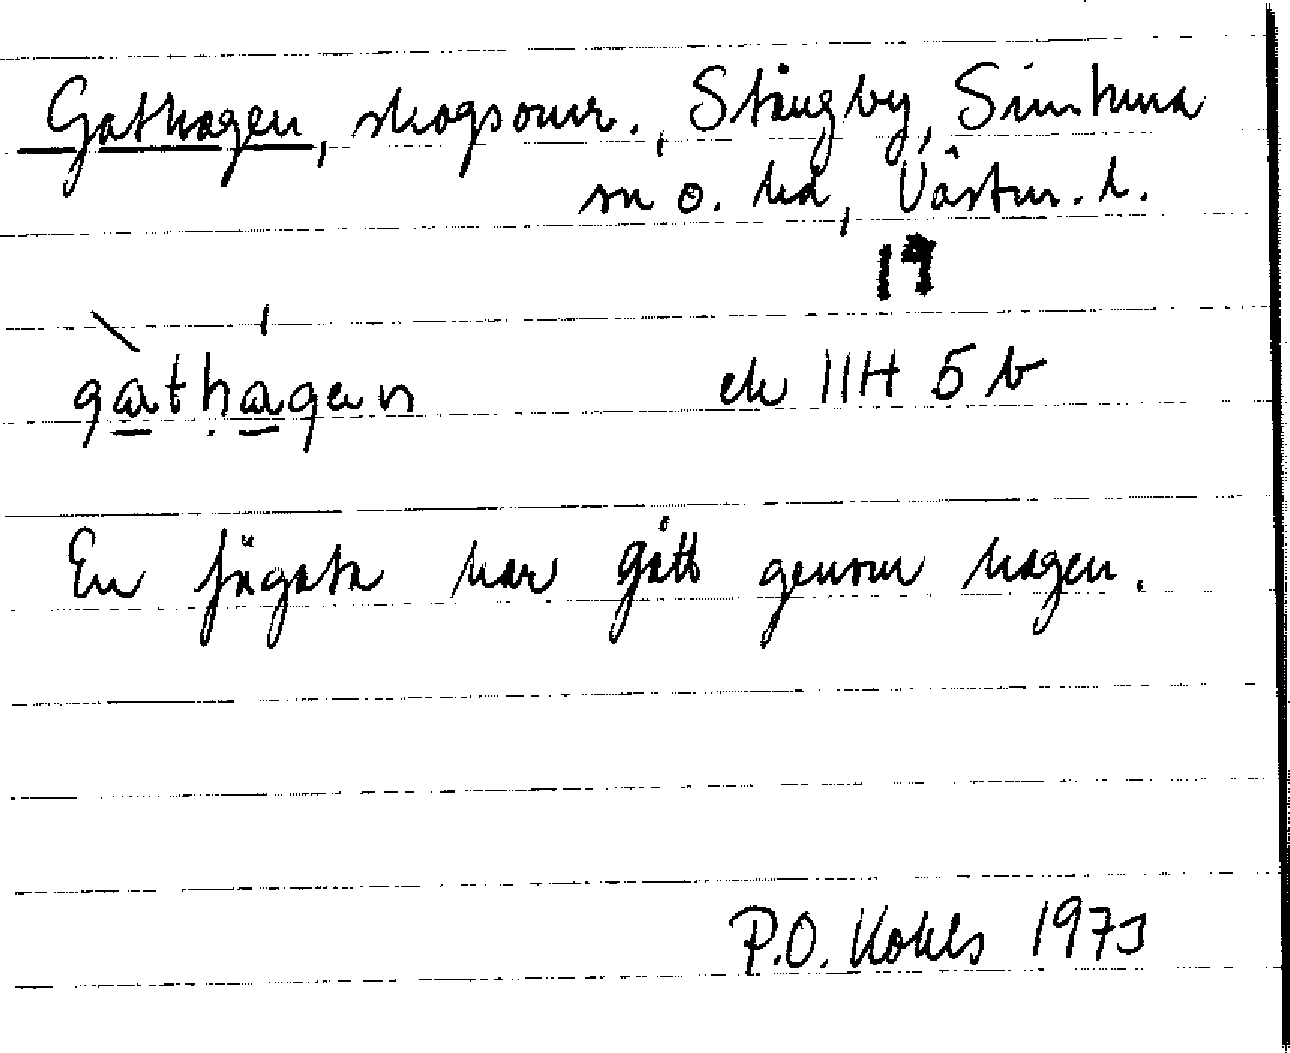 Gathagen, skogsomr., Stängby, Simtuna
sn o. hd, Västm. l.
19
gathagen ek 11H 5 b
En fägata har gått genom hagen.
P.O. Kohls 1973